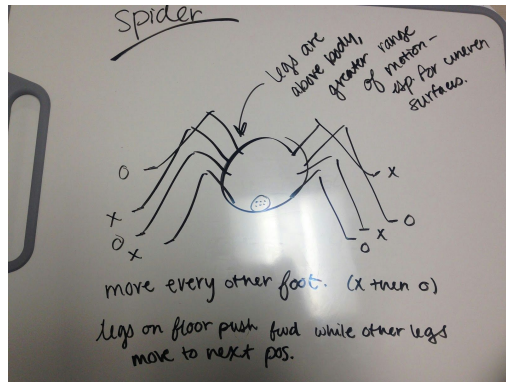 spider
legs are
above body,
greater range
of motion -
esp. for uneven
surfaces.
O
X
O
X
X
O
X
O
move every other foot. (X then O)
legs on floor push fwd while other legs
move to next pos.